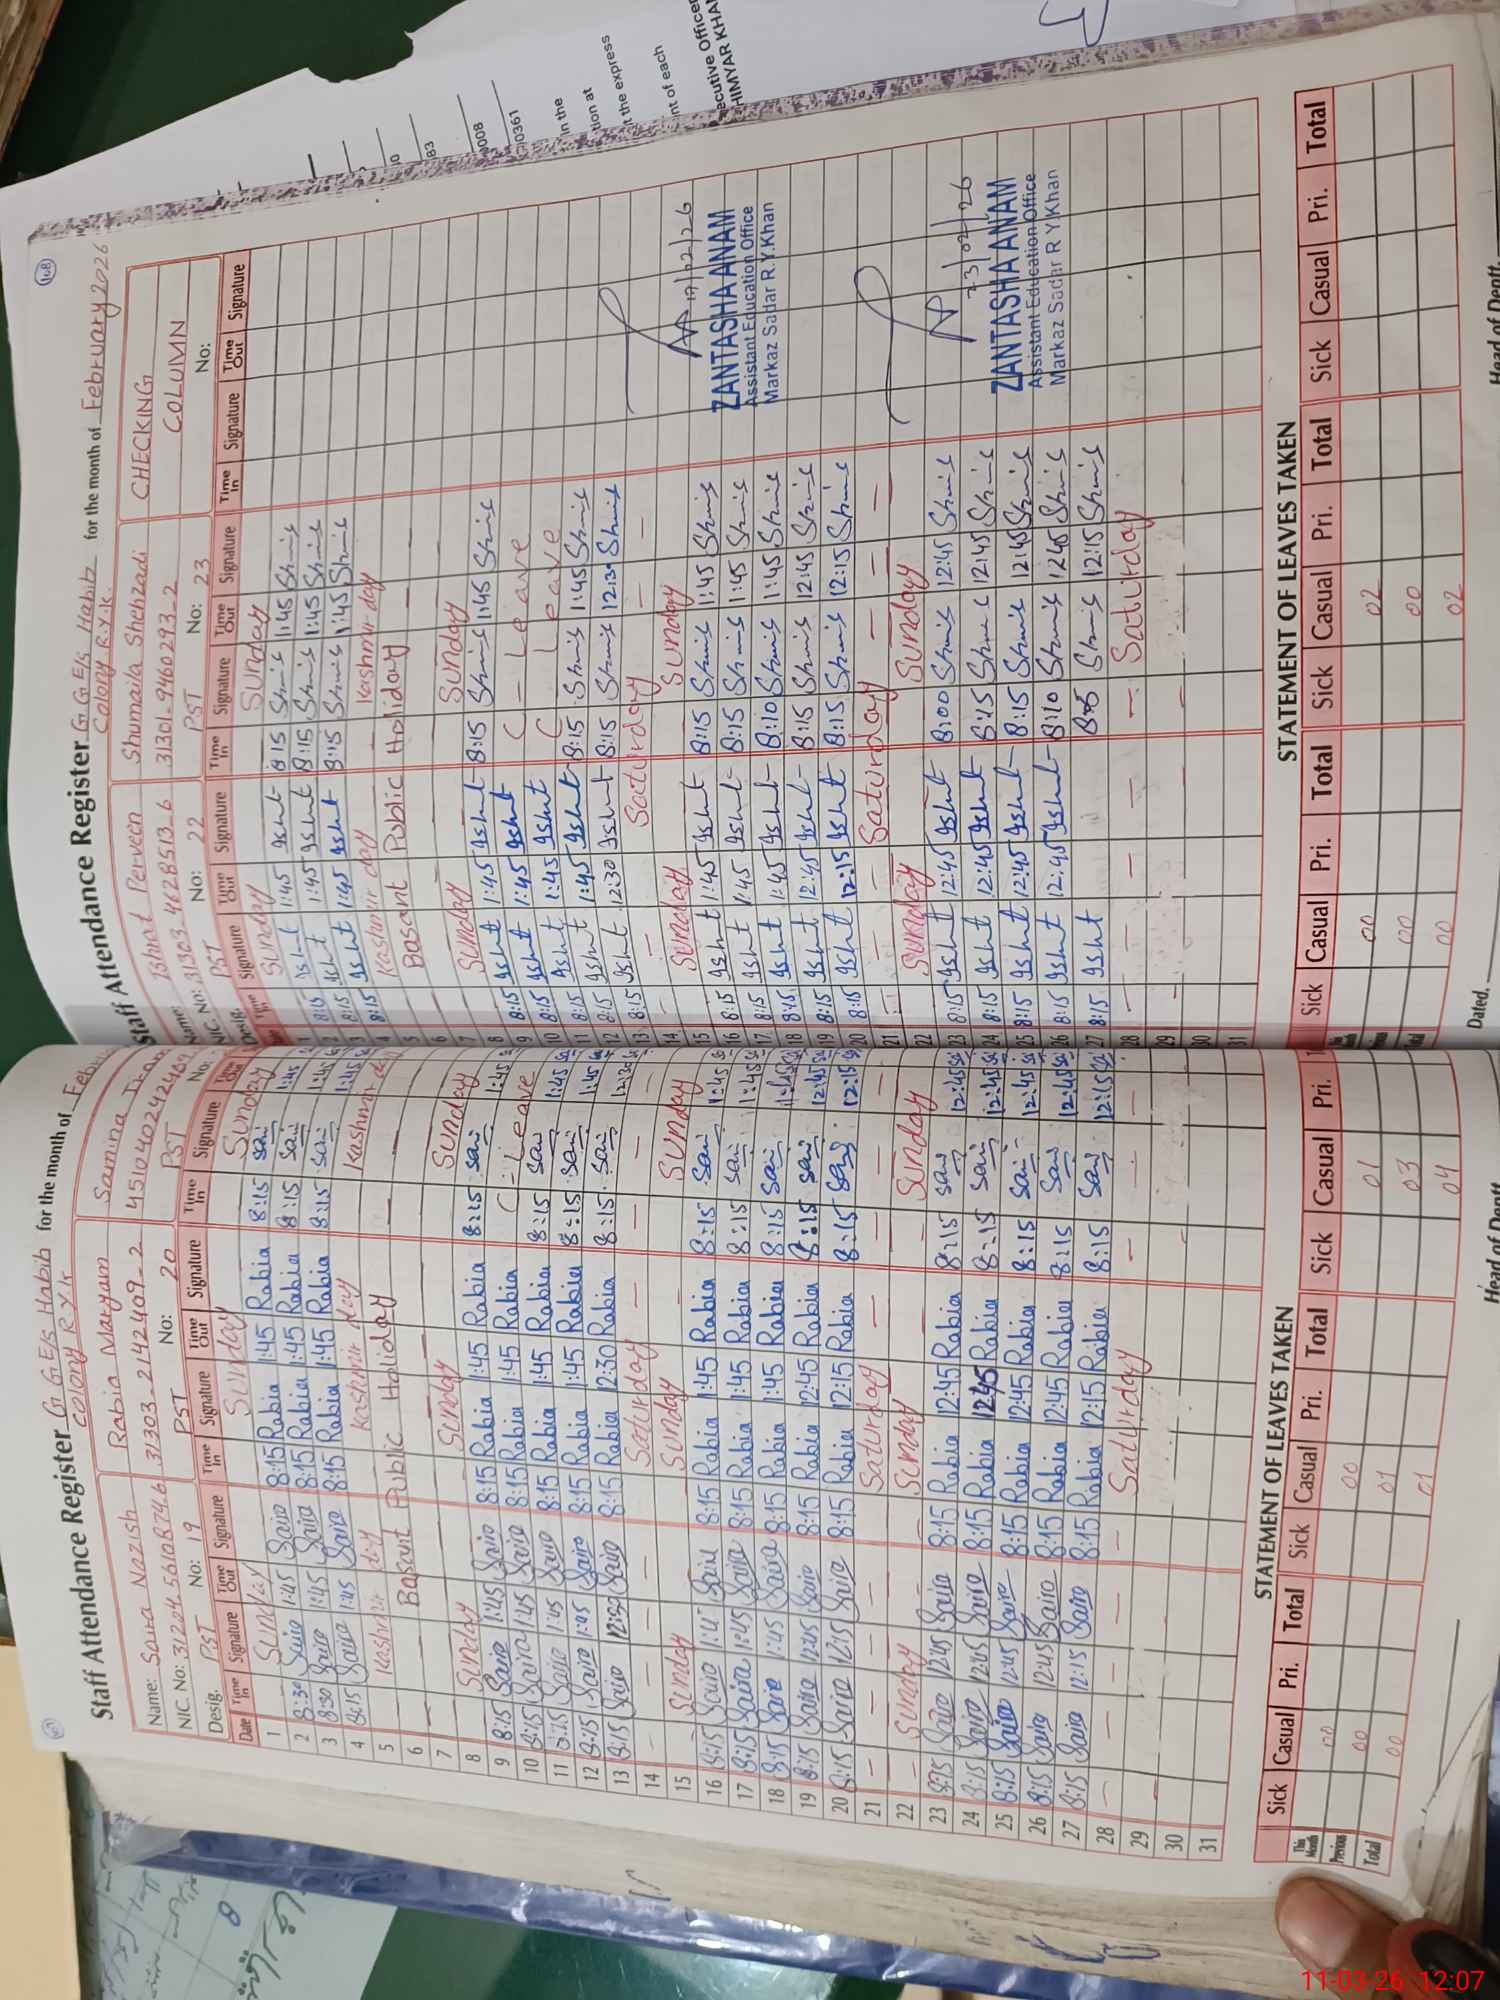 Staff Attendance Register G G E/S Habib for the month of
Colony R.Y.K
Name: Saira Nazish
Rabia Maryum
Samina
NIC. No:
31303-2142409-2
45104024224
Desig. PST No: 19
PST No: 20
PST No:
Date Time In Signature Time Out Signature Time In Signature Time Out Signature Time In Signature Time Out
1 Sunday Sunday Sunday
2 8:30 Saira 1:45 Saira 8:15 Rabia 1:45 Rabia 8:15 Sai 1:45
3 8:30 Saira 1:45 Saira 8:15 Rabia 1:45 Rabia 8:15 Sai 1:45
4 8:15 Saira 1:45 Saira 8:15 Rabia 1:45 Rabia 8:15 Sai 1:45
5 Kashmir day Kashmir day Kashmir day
6 Basant Public Holiday
7
8 Sunday Sunday Sunday
9 8:15 Saira 1:45 Saira 8:15 Rabia 1:45 Rabia 8:15 Sai 1:45
10 8:15 Saira 1:45 Saira 8:15 Rabia 1:45 Rabia C - Leave
11 8:15 Saira 1:45 Saira 8:15 Rabia 1:45 Rabia 8:15 Sai 1:45
12 8:15 Saira 1:45 Saira 8:15 Rabia 1:45 Rabia 8:15 Sai 1:45
13 8:15 Saira 12:30 Saira 8:15 Rabia 12:30 Rabia 8:15 Sai 12:30
14 Saturday
15 Sunday Sunday Sunday
16 8:15 Saira 1:45 Saira 8:15 Rabia 1:45 Rabia 8:15 Sai 1:45
17 8:15 Saira 1:45 Saira 8:15 Rabia 1:45 Rabia 8:15 Sai 1:45
18 8:15 Saira 1:45 Saira 8:15 Rabia 1:45 Rabia 8:15 Sai 1:45
19 8:15 Saira 12:45 Saira 8:15 Rabia 12:45 Rabia 8:15 Sai 12:45
20 8:15 Saira 12:15 Saira 8:15 Rabia 12:15 Rabia 8:15 Sai 12:15
21 Saturday
22 Sunday Sunday Sunday
23 8:15 Saira 12:45 Saira 8:15 Rabia 12:45 Rabia 8:15 Sai 12:45
24 8:15 Saira 12:45 Saira 8:15 Rabia 12:45 Rabia 8:15 Sai 12:45
25 8:15 Saira 12:45 Saira 8:15 Rabia 12:45 Rabia 8:15 Sai 12:45
26 8:15 Saira 12:45 Saira 8:15 Rabia 12:45 Rabia 8:15 Sai 12:45
27 8:15 Saira 12:15 Saira 8:15 Rabia 12:15 Rabia 8:15 Sai 12:15
28 Saturday
29
30
31
STATEMENT OF LEAVES TAKEN
Sick Casual Pri. Total Sick Casual Pri. Total Sick Casual Pri.
This Month 00 00 01
Previous 00 01 03
Total 00 01 04
Head of Deptt.
168
Staff Attendance Register G G E/S Habib for the month of February 2026
Colony R.Y.K.
Name: Ishrat Perveen
Shumaila Shehzadi
CHECKING
NIC. No: 31303-4628513-6
31301-9460293-2
COLUMN
Desig. PST No: 22
PST No: 23
No:
Time In Signature Time Out Signature Time In Signature Time Out Signature Time In Signature Time Out Signature
1 Sunday Sunday
2 8:15 Isht 1:45 Isht 8:15 Shmi 1:45 Shmi
3 8:15 Isht 1:45 Isht 8:15 Shmi 1:45 Shmi
4 8:15 Isht 1:45 Isht 8:15 Shmi 1:45 Shmi
5 Kashmir day Kashmir day
6 Basant Public Holiday
7
8 Sunday Sunday
9 8:15 Isht 1:45 Isht 8:15 Shmi 1:45 Shmi
10 8:15 Isht 1:45 Isht C - Leave
11 8:15 Isht 1:45 Isht C Leave
12 8:15 Isht 1:45 Isht 8:15 Shmi 1:45 Shmi
13 8:15 Isht 12:30 Isht 8:15 Shmi 12:30 Shmi
14 Saturday
15 Sunday Sunday
16 8:15 Isht 1:45 Isht 8:15 Shmi 1:45 Shmi
17 8:15 Isht 1:45 Isht 8:15 Shmi 1:45 Shmi
18 8:15 Isht 1:45 Isht 8:10 Shmi 1:45 Shmi
19 8:15 Isht 12:45 Isht 8:15 Shmi 12:45 Shmi
20 8:15 Isht 12:15 Isht 8:15 Shmi 12:15 Shmi
21 Saturday
22 Sunday Sunday
23 8:15 Isht 12:45 Isht 8:00 Shmi 12:45 Shmi
24 8:15 Isht 12:45 Isht 8:15 Shmi 12:45 Shmi
25 8:15 Isht 12:45 Isht 8:15 Shmi 12:45 Shmi
26 8:15 Isht 12:45 Isht 8:10 Shmi 12:45 Shmi
27 8:15 Isht Shmi 12:15 Shmi
28 Saturday
29
30
31
17/02/26
ZANTASHA ANAM
Assistant Education Office
Markaz Sadar R.Y.Khan
23/02/26
ZANTASHA ANAM
Assistant Education Office
Markaz Sadar R Y Khan
STATEMENT OF LEAVES TAKEN
Sick Casual Pri. Total Sick Casual Pri. Total Sick Casual Pri. Total
00 02
00 00
00 02
Dated.
Head of Deptt.
83
in the
tion at
t the express
nt of each
ecutive Officer
HIMYAR KHA
11-03-26 12:07